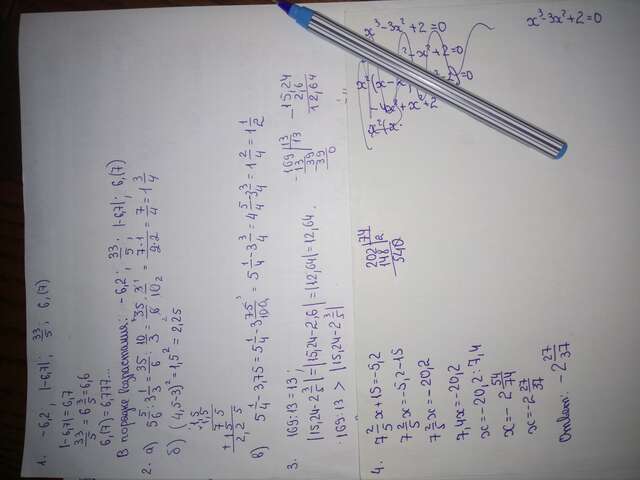 1. -6,2 ; |-6,7| ; 33/5 ; 6,(7)
|-6,7| = 6,7
33/5 = 6 3/5 = 6,6
6,(7) = 6,777...
В порядке возрастания: -6,2 ; 33/5 ; |-6,7| ; 6,(7)
2. а) 5 5/6 : 3 1/3 = 35/6 : 10/3 = 35/6 · 3/10 = 7·1/2·2 = 7/4 = 1 3/4
б) (4,5-3)² = 1,5² = 2,25
1,5
1,5
7 5
+ 1 5
2,2 5
в) 5 1/4 - 3,75 = 5 1/4 - 3 75/100 = 5 1/4 - 3 3/4 = 4 5/4 - 3 3/4 = 1 2/4 = 1 1/2
3. 169:13 = 13 ;
|15,24 - 2 3/5| = |15,24 - 2,6| = |12,64| = 12,64.
169:13 > |15,24 - 2 3/5|
- 169 | 13
13 | 13
39
39
0
- 15,24
2,6
12,64
4. 7 2/5 x + 15 = -5,2
7 2/5 x = -5,2 - 15
7 2/5 x = -20,2
7,4x = -20,2
x = -20,2 : 7,4
x = -2 54/74
x = -2 27/37
Ответ: -2 27/37
202 | 74
148 | 2
540
x³ - 3x² + 2 = 0
x³ - 3x² + 2 = 0